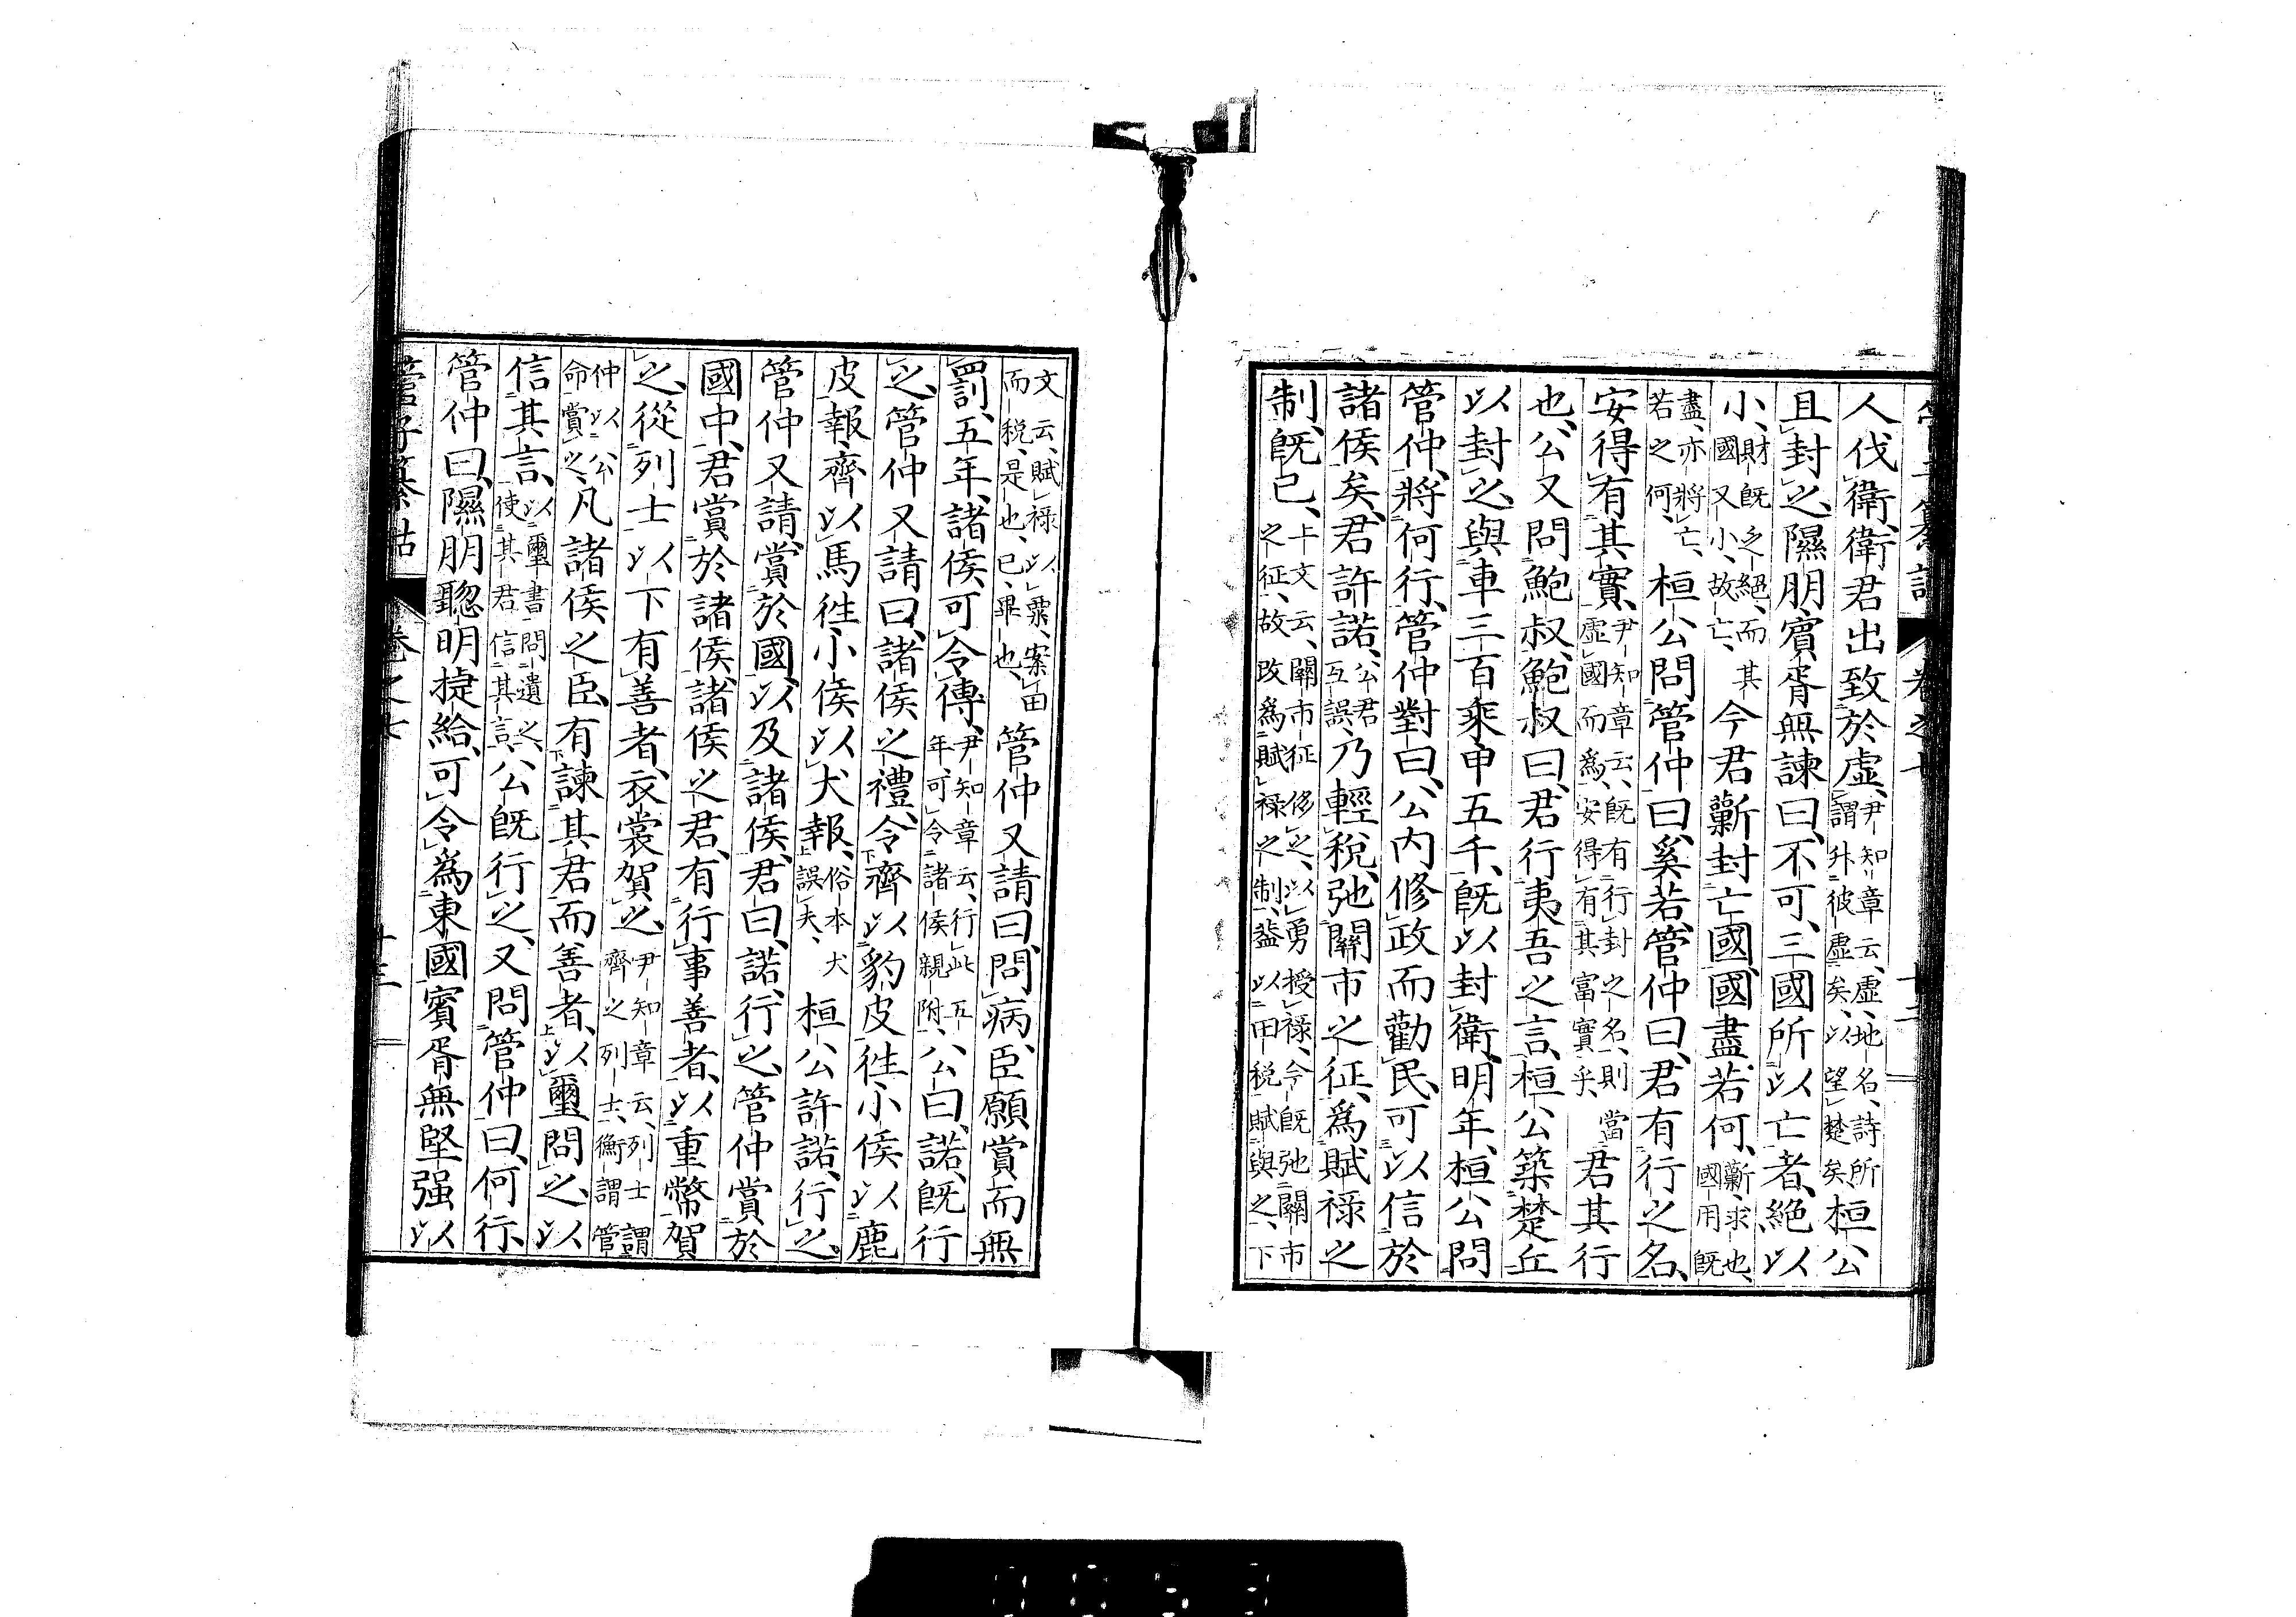 管子纂詁 卷之七 十三
人伐衛、衛君出致於虛、尹知章云、虛、地名、詩所謂升彼虛矣、以望楚矣、桓公
且封之、隰朋賓胥無諫曰、不可、三國所以亡者、絕以
小、財既乏絕、而其國又小、故亡、今君蘄封亡國、國盡若何、蘄、求也、國用既
盡、亦將亡、若之何、桓公問管仲曰、奚若、管仲曰、君有行之名、
安得有其實、尹知章云、既有行封之名、則當虛國而爲、安得有其富實乎、君其行
也、公又問鮑叔、鮑叔曰、君行夷吾之言、桓公築楚丘
以封之、與車三百乘甲五千、既以封衛、明年、桓公問
管仲、將何行、管仲對曰、公內修政而勸民、可以信於
諸侯矣、君許諾、公君互誤、乃輕稅、弛關市之征、爲賦祿之
制、既已、上文云、關市征侈之、以勇授祿、今既弛關市之征、故改爲賦祿之制、蓋以田稅賦與之、下
文云、賦祿以粟、案田而稅、是也、已、畢也、管仲又請曰、問病、臣願賞而無
罰、五年、諸侯可令傅、尹知章云、行此五年、可令諸侯親附、公曰、諾、既行
之、管仲又請曰、諸侯之禮、令齊以豹皮往小侯以鹿
皮報、齊以馬往小侯以犬報、俗本犬誤夫、桓公許諾、行之、
管仲又請、賞於國、以及諸侯、君曰、諾、行之、管仲賞於
國中、君賞於諸侯、諸侯之君、有行事善者、以重幣賀
之、從列士以下有善者、衣裳賀之、尹知章云、列士謂齊之列士、衡謂管
仲以公命賞之、凡諸侯之臣、有諫其君而善者、以璽問之、以
信其言、以璽書問遺之、使其君信其言、公既行之、又問管仲曰、何行、
管仲曰、隰朋聰明捷給、可令爲東國、賓胥無堅强以
管子纂詁 卷之七 十三